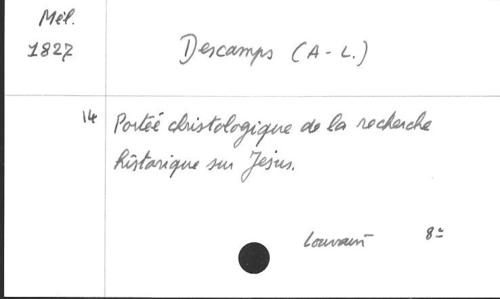 Mél.
1827
Descamps (A-L.)
14 Portéé christologique de la recherche
historique sur Jésus.
Louvain 8º